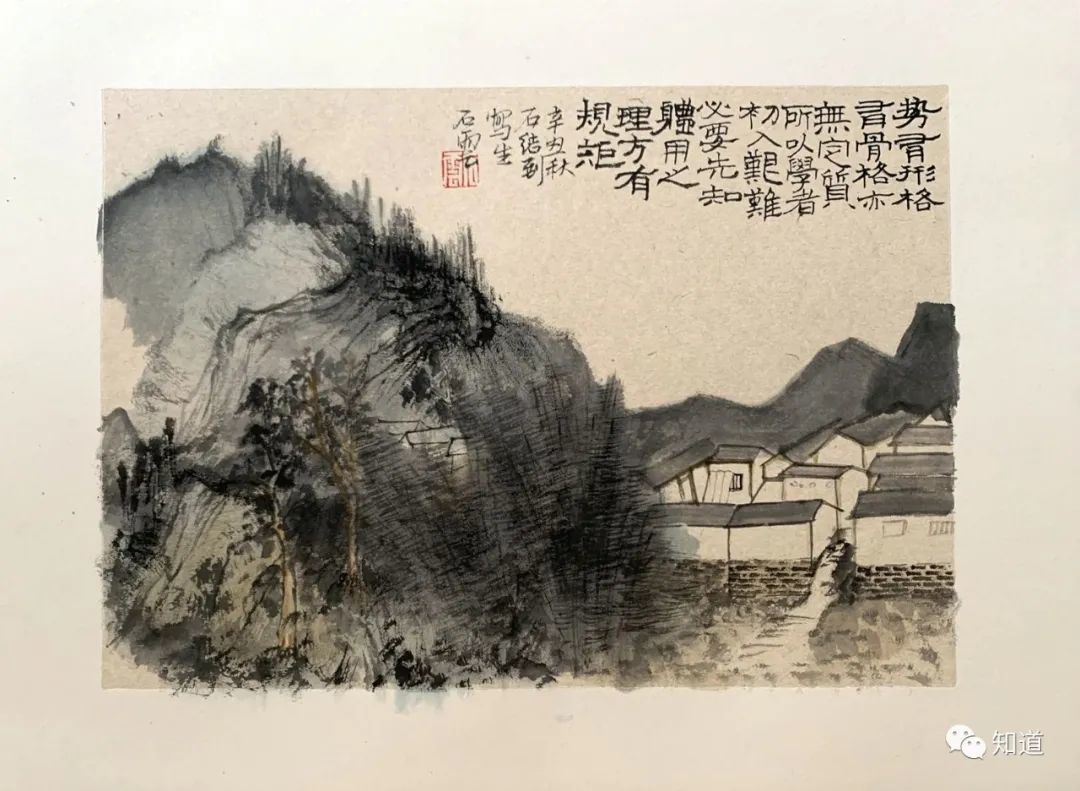 势有形格
有骨格亦
無定質
所以學者
初入艱難
必要先知
體用之
理方有
規矩
辛丑秋
石结
写生
石雨
知道